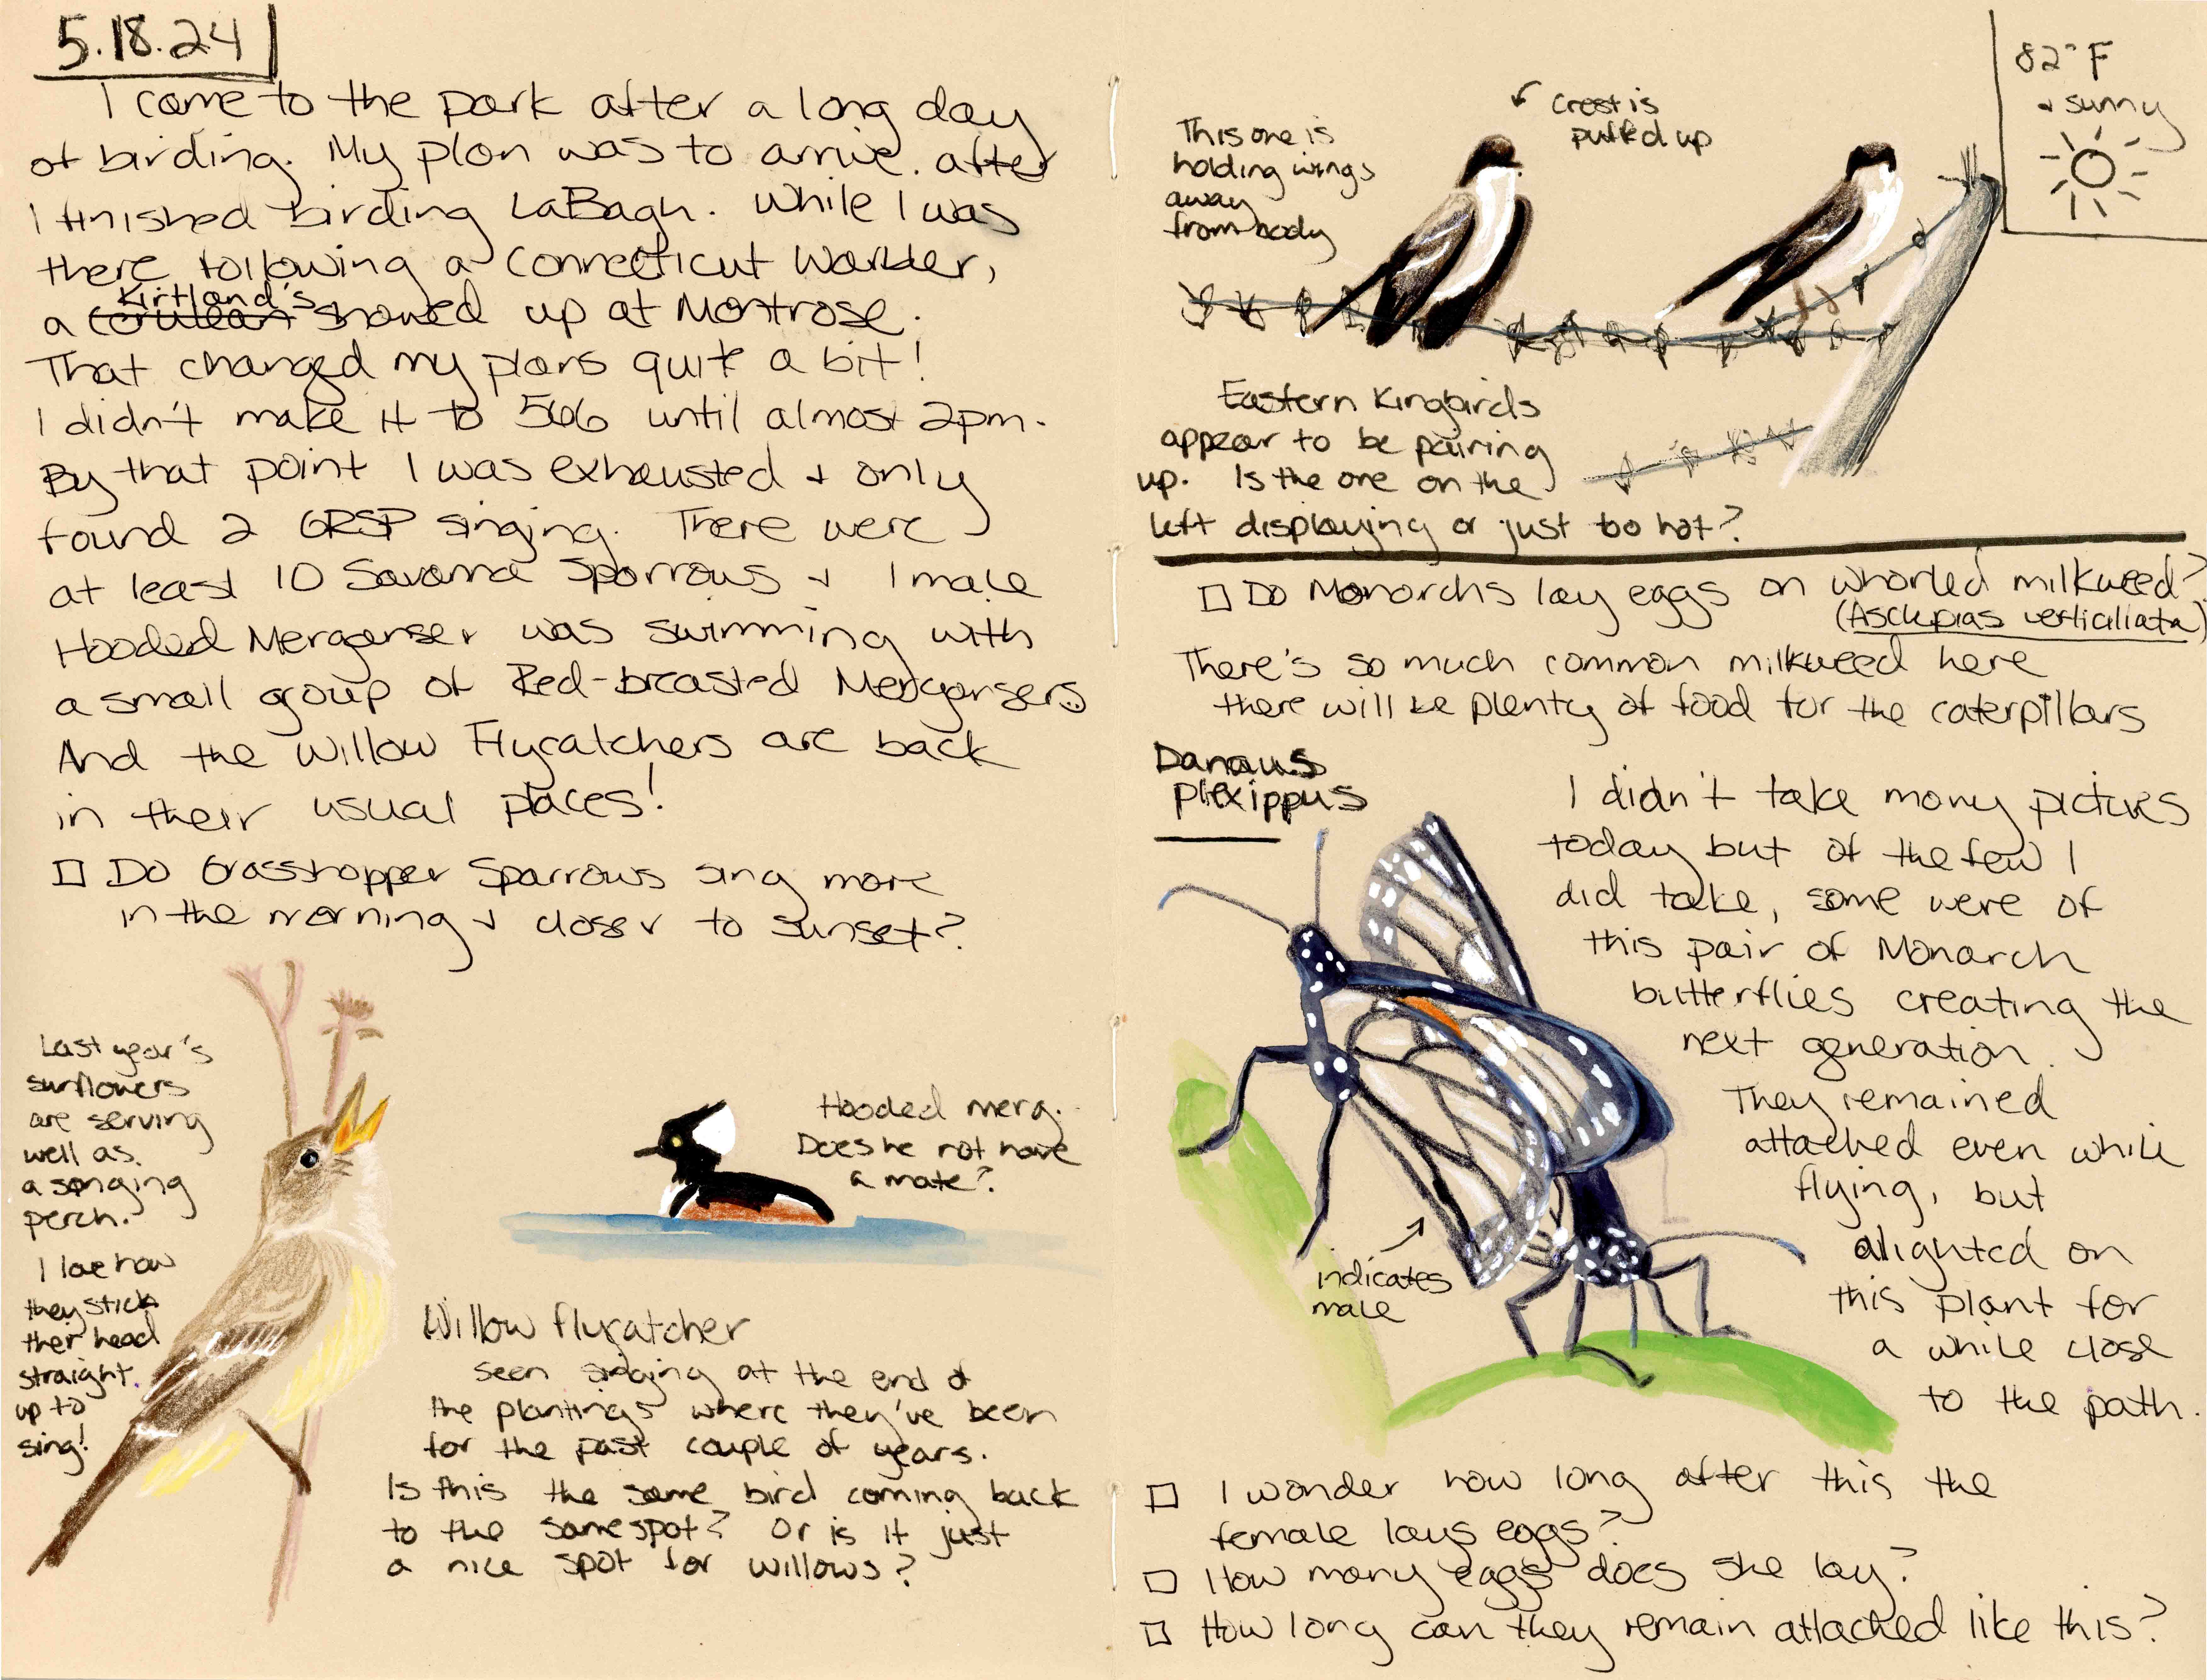 5.18.24
I came to the park after a long day
of birding. My plan was to arrive after
I finished birding LaBagh. While I was
there following a Connecticut Warbler,
Kirtland's
a cerulean showed up at Montrose.
That changed my plans quite a bit!
I didn't make it to 566 until almost 2pm.
By that point I was exhausted + only
found 2 GRSP singing. There were
at least 10 Savanna Sparrows + 1 male
Hooded Merganser was swimming with
a small group of Red-breasted Mergansers
And the Willow Flycatchers are back
in their usual places!
☐ Do Grasshopper Sparrows sing more
in the morning + closer to sunset?
Last year's
sunflowers
are serving
well as
a singing
perch.
I love how
they stick
ther head
straight
up to
sing!
Hooded merg.
Does he not have
a mate?
Willow flycatcher
seen singing at the end of
the plantings where they've been
for the past couple of years.
Is this the same bird coming back
to the same spot? Or is it just
a nice spot for willows?
82°F
+ sunny
Crest is
puffed up
This one is
holding wings
away
from body
Eastern Kingbirds
appear to be pairing
up. Is the one on the
left displaying or just too hot?
☐ Do Monarchs lay eggs on whorled milkweed?
(Asclepias verticiliata)
There's so much common milkweed here
there will be plenty of food for the caterpillars
Danaus
plexippus
I didn't take many pictures
today but of the few I
did take, some were of
this pair of Monarch
butterflies creating the
next generation.
They remained
attached even while
flying, but
alighted on
this plant for
a while close
to the path.
indicates
male
☐ I wonder how long after this the
female lays eggs?
☐ How many eggs does she lay?
☐ How long can they remain attached like this?